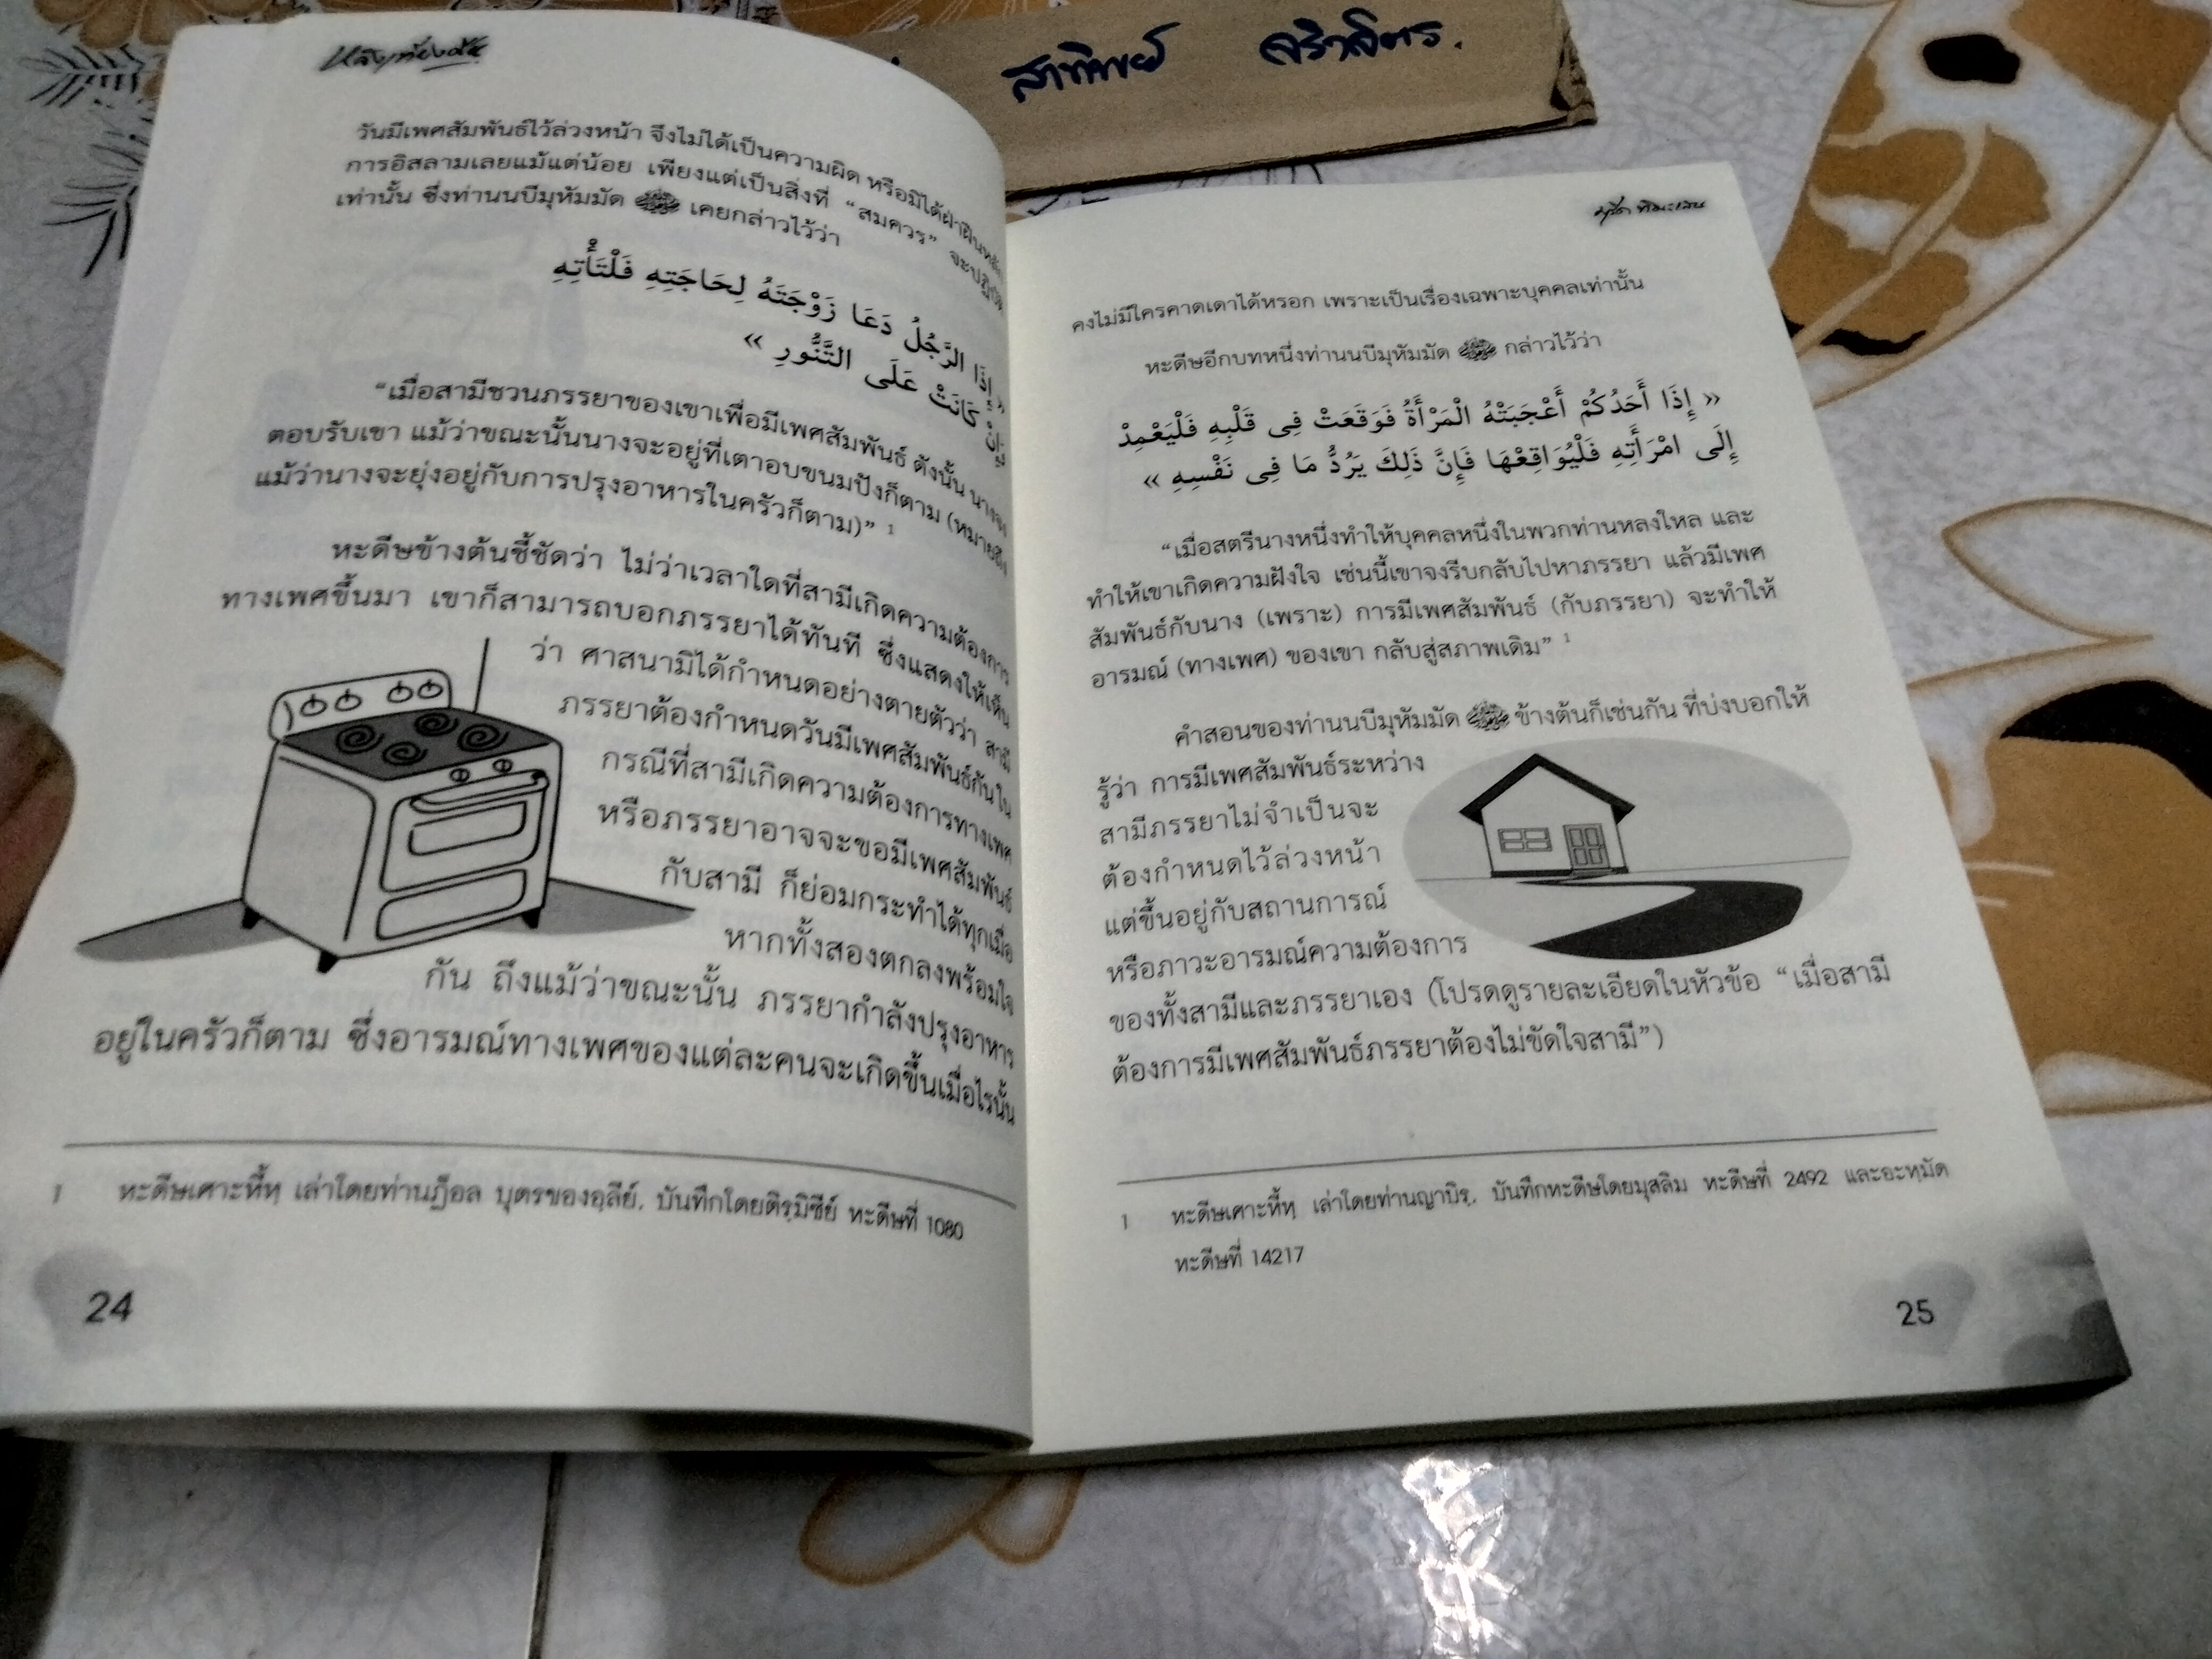 หลังเที่ยงคืน
วันมีเพศสัมพันธ์ไว้ล่วงหน้า จึงไม่ได้เป็นความผิด หรือมิได้ฝ่าฝืนหลัก
การอิสลามเลยแม้แต่น้อย เพียงแต่เป็นสิ่งที่ “สมควร” จะปฏิบัติ
เท่านั้น ซึ่งท่านนบีมุหัมมัด ﷺ เคยกล่าวไว้ว่า
« إِذَا الرَّجُلُ دَعَا زَوْجَتَهُ لِحَاجَتِهِ فَلْتَأْتِهِ
وَإِنْ كَانَتْ عَلَى التَّنُّورِ »
“เมื่อสามีชวนภรรยาของเขาเพื่อมีเพศสัมพันธ์ ดังนั้น นางจง
ตอบรับเขา แม้ว่าขณะนั้นนางจะอยู่ที่เตาอบขนมปังก็ตาม (หมายถึง
แม้ว่านางจะยุ่งอยู่กับการปรุงอาหารในครัวก็ตาม)” 1
หะดีษข้างต้นชี้ชัดว่า ไม่ว่าเวลาใดที่สามีเกิดความต้องการ
ทางเพศขึ้นมา เขาก็สามารถบอกภรรยาได้ทันที ซึ่งแสดงให้เห็น
ว่า ศาสนามิได้กำหนดอย่างตายตัวว่า สามี
ภรรยาต้องกำหนดวันมีเพศสัมพันธ์กันใน
กรณีที่สามีเกิดความต้องการทางเพศ
หรือภรรยาอาจจะขอมีเพศสัมพันธ์
กับสามี ก็ย่อมกระทำได้ทุกเมื่อ
หากทั้งสองตกลงพร้อมใจ
กัน ถึงแม้ว่าขณะนั้น ภรรยากำลังปรุงอาหาร
อยู่ในครัวก็ตาม ซึ่งอารมณ์ทางเพศของแต่ละคนจะเกิดขึ้นเมื่อไรนั้น
1 หะดีษเศาะหี้หฺ เล่าโดยท่านฏ็อล บุตรของอฺลีย์, บันทึกโดยติรฺมิซีย์ หะดีษที่ 1080
24
คงไม่มีใครคาดเดาได้หรอก เพราะเป็นเรื่องเฉพาะบุคคลเท่านั้น
หะดีษอีกบทหนึ่งท่านนบีมุหัมมัด ﷺ กล่าวไว้ว่า
« إِذَا أَحَدُكُمْ أَعْجَبَتْهُ الْمَرْأَةُ فَوَقَعَتْ فِى قَلْبِهِ فَلْيَعْمِدْ
إِلَى امْرَأَتِهِ فَلْيُوَاقِعْهَا فَإِنَّ ذَلِكَ يَرُدُّ مَا فِى نَفْسِهِ »
“เมื่อสตรีนางหนึ่งทำให้บุคคลหนึ่งในพวกท่านหลงใหล และ
ทำให้เขาเกิดความฝังใจ เช่นนี้เขาจงรีบกลับไปหาภรรยา แล้วมีเพศ
สัมพันธ์กับนาง (เพราะ) การมีเพศสัมพันธ์ (กับภรรยา) จะทำให้
อารมณ์ (ทางเพศ) ของเขา กลับสู่สภาพเดิม” 1
คำสอนของท่านนบีมุหัมมัด ﷺ ข้างต้นก็เช่นกัน ที่บ่งบอกให้
รู้ว่า การมีเพศสัมพันธ์ระหว่าง
สามีภรรยาไม่จำเป็นจะ
ต้องกำหนดไว้ล่วงหน้า
แต่ขึ้นอยู่กับสถานการณ์
หรือภาวะอารมณ์ความต้องการ
ของทั้งสามีและภรรยาเอง (โปรดดูรายละเอียดในหัวข้อ “เมื่อสามี
ต้องการมีเพศสัมพันธ์ภรรยาต้องไม่ขัดใจสามี”)
1 หะดีษเศาะหี้หฺ เล่าโดยท่านญาบิรฺ, บันทึกหะดีษโดยมุสลิม หะดีษที่ 2492 และอะหฺมัด
หะดีษที่ 14217
25